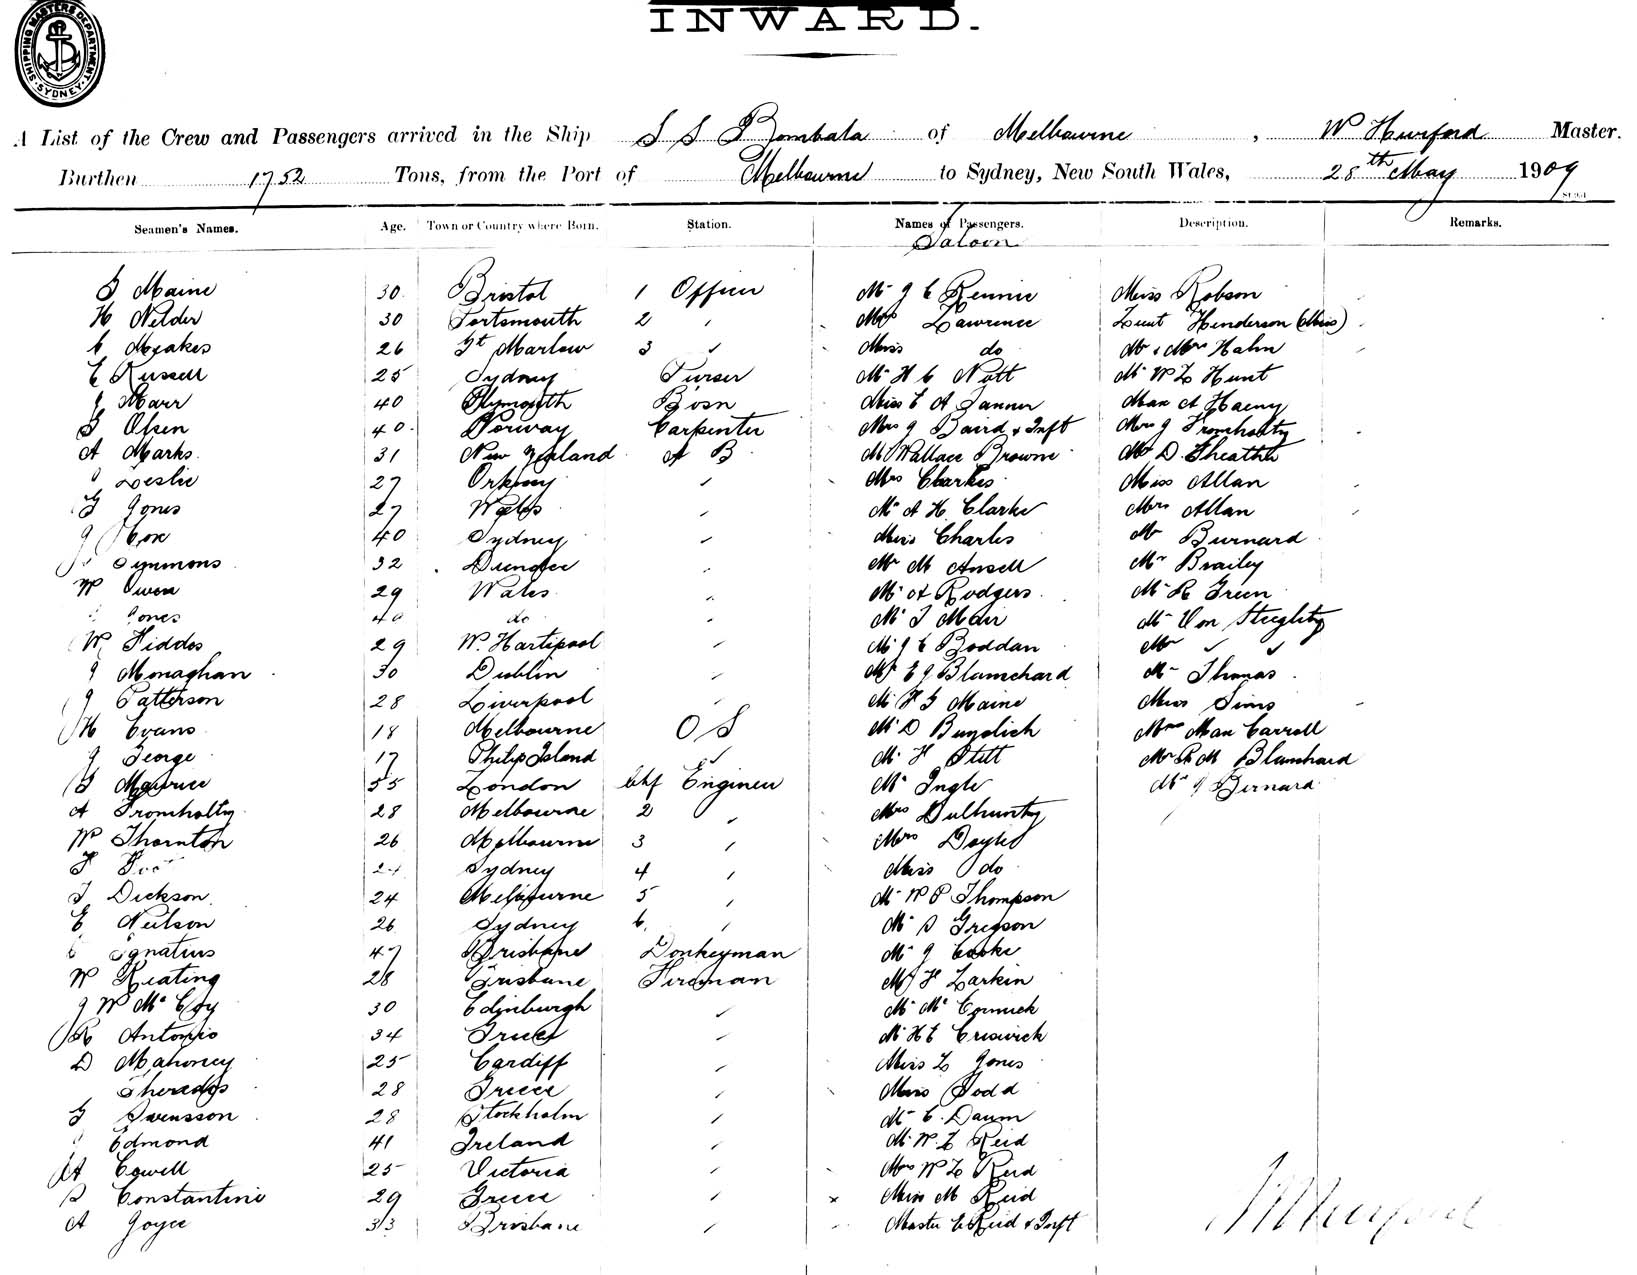 INWARD.
SHIPPING MASTERS DEPARTMENT SYDNEY
A List of the Crew and Passengers arrived in the Ship S S Bombala of Melbourne, W Hurford Master.
Burthen 1752 Tons, from the Port of Melbourne to Sydney, New South Wales, 28th May 1909
Seamen's Names. Age. Town or Country where Born. Station. Names of Passengers. Description. Remarks.
Saloon
Maine 30 Bristol 1 Officer Mr J C Rennie Miss Robson
H Nelder 30 Portsmouth 2 Mrs Lawrence Lieut Henderson (Miss)
26 Gt Marlow 3 Miss do Mr & Mrs Hahn
E Russell 25 Sydney Purser Mr H C Nott Mr W L Hunt
J Marr 40 Plymouth Bosn Miss E A Tanner Max A Haeny
Olsen 40 Norway Carpenter Mrs J Baird & Inft Mrs J Tromholtz
A Marks 31 New Zealand A B Mr Wallace Browne Mr D. Theather
Leslie 27 Orkney Mrs Charles Miss Allan
Jones 27 Wales Mr A H Clarke Mrs Allan
J Cox 40 Sydney Miss Charles Mr Burnard
Symmons 32 Dundee Mr M Ansell Mr Brailey
W Owen 29 Wales Mr A Rodgers Mr R Green
Jones 40 do Mr T Moir Mr Von Stieglitz
W Fiddes 29 W. Hartlpool Mr J C Boddan Mrs
J Monaghan 30 Dublin Mr E J Blanchard Mr Thomas
J Patterson 28 Liverpool Mr F G Maine Miss Sims
H Evans 18 Melbourne O S Mr D Mrs Max Carroll
J George 17 Philip Island Mr H Stitt Mr R M Blanchard
Maurice 55 London Chf Engineer Mr Ingle Mr J Bernard
A Tromholtz 28 Melbourne 2 Mrs Dulhunty
W Thornton 26 Melbourne 3 Mrs Doyle
24 Sydney 4 Miss do
T Dickson 24 Melbourne 5 Mr W P Thompson
E Neilson 26 Sydney 6 Mr S Gregson
C Ignatius 47 Brisbane Donkeyman Mr J Cooke
W Keating 28 Brisbane Fireman Mr H Larkin
J W McCoy 30 Edinburgh Mr McCormick
R Antonio 34 Greece Mr H E Criswick
D Mahoney 25 Cardiff Miss L Jones
28 Greece Miss Todd
G Swensson 28 Stockholm Mr C. Daum
Edmond 41 Ireland Mr W. L Reid
A Cowell 25 Victoria Mrs W L Reid
S Constantine 29 Greece Miss M Reid
A Joyce 33 Brisbane Master C Reid & Inft
W Hurford